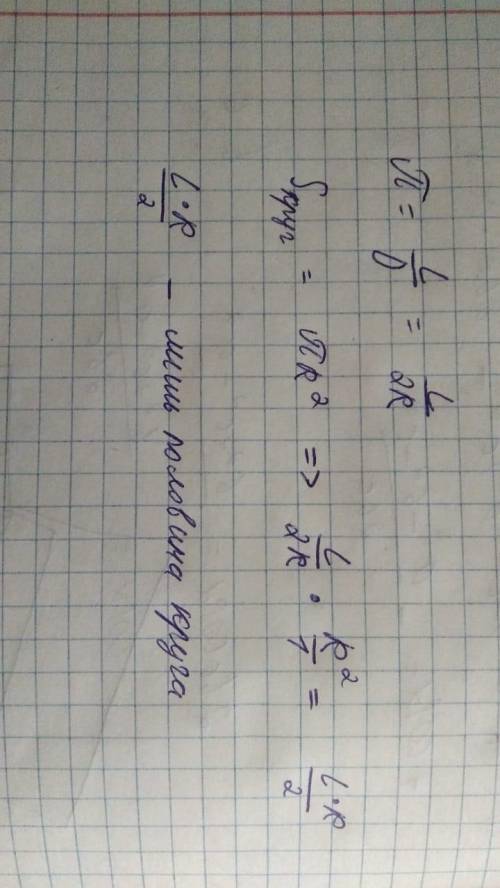 π = L/D = L/2R
Sкруг = πR² => L/2R · R²/1 = L·R/2
L·R/2 – лишь половина круга